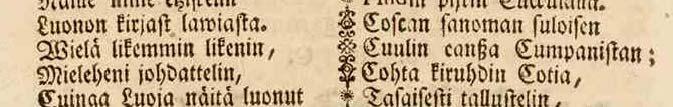 Luonon kirjast lawiasta.
Wielä likemmin likenin,
Mieleheni johdattelin,
Cuinga Luoja näitä luonut
Coscan sanoman suloisen
Cuulin canßa Cumpanistan;
Cohta kiruhdin Cotia,
Tasaisesti tallustelin,